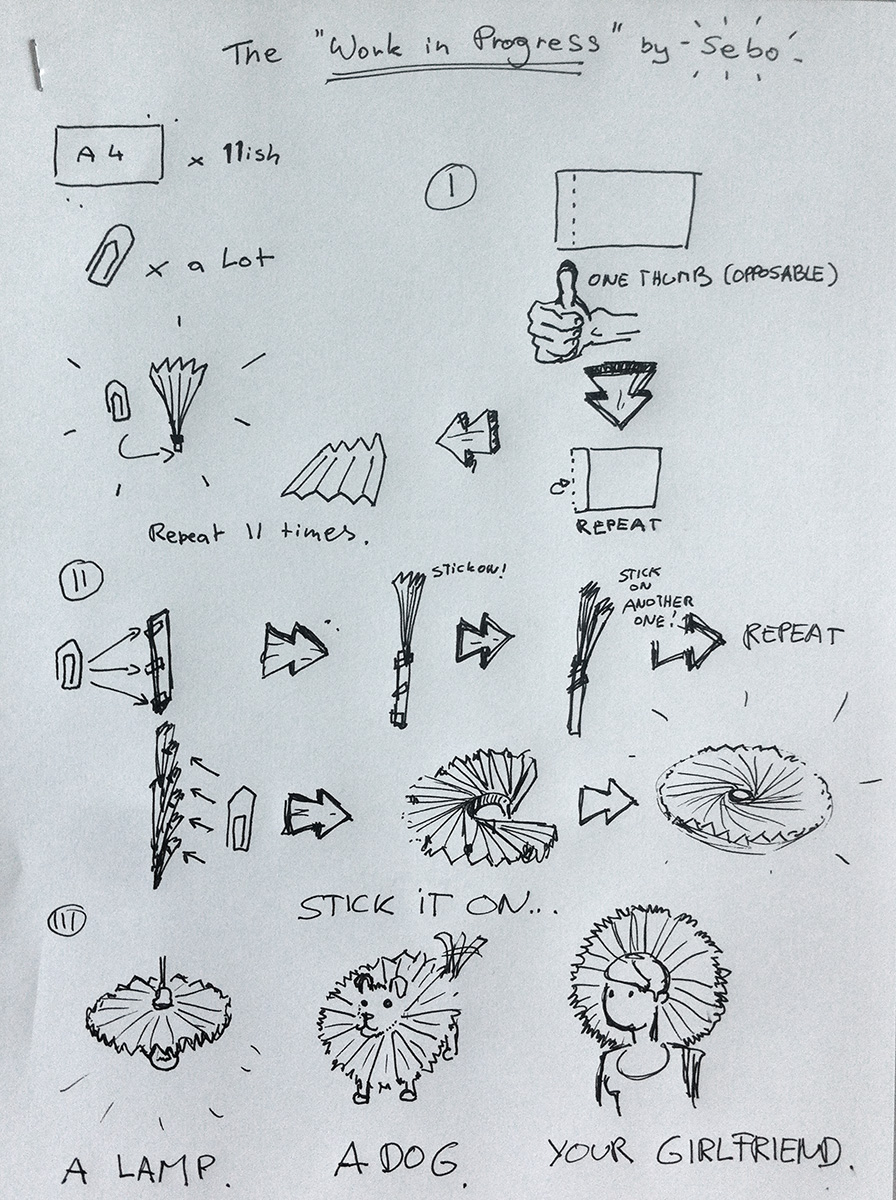 The "Work in Progress" by Sebo
A4 x 11ish
x a Lot
I
ONE THUMB (OPPOSABLE)
REPEAT
Repeat 11 times.
II
STICK ON!
STICK
ON
ANOTHER
ONE!
REPEAT
III
STICK iT ON...
A LAMP.
A DOG.
YOUR GIRLFRIEND.